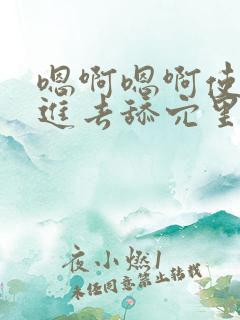 嗯啊嗯啊使
進去舔穴里
夜小燃1
未经同意禁止转载